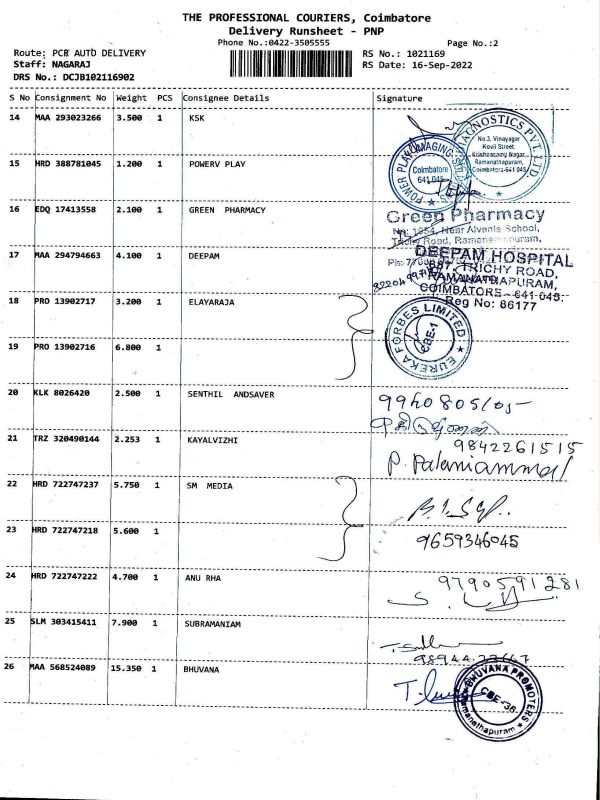 THE PROFESSIONAL COURIERS, Coimbatore
Delivery Runsheet - PNP
Phone No.:0422-3505555
Page No.:2
Route: PCB AUTO DELIVERY
RS No.: 1021169
Staff: NAGARAJ
RS Date: 16-Sep-2022
DRS No.: DCJB102116902
S No Consignment No Weight PCS Consignee Details Signature
14 MAA 293023266 3.500 1 KSK
DIAGNOSTICS PVT. LTD
No.3, Vinayagar
Kovil Street,
Krishnasamy Nagar,
Ramanathapuram,
Coimbatore-641 045
15 HRD 388781045 1.200 1 POWERV PLAY
Coimbatore
641 045
16 EDQ 17413558 2.100 1 GREEN PHARMACY
Green Pharmacy
No: 1654, Near Alvania School,
Trichy Road, Ramanathapuram,
17 MAA 294794663 4.100 1 DEEPAM
DEEPAM HOSPITAL
TRICHY ROAD,
RAMANATHAPURAM,
COIMBATORE - 641 045.
Reg No: 86177
18 PRO 13902717 3.200 1 ELAYARAJA
EUREKA FORBES LIMITED
CBE-1
19 PRO 13902716 6.800 1
20 KLK 8026420 2.500 1 SENTHIL ANDSAVER
21 TRZ 320490144 2.253 1 KAYALVIZHI
9842261515
P. Palaniammal
22 HRD 722747237 5.750 1 SM MEDIA
23 HRD 722747218 5.600 1
9659346045
24 HRD 722747222 4.700 1 ANU RHA
9790591281
25 SLM 303415411 7.900 1 SUBRAMANIAM
26 MAA 568524089 15.350 1 BHUVANA
BHUVANA PROMOTERS
CBE-36
Ramanathapuram